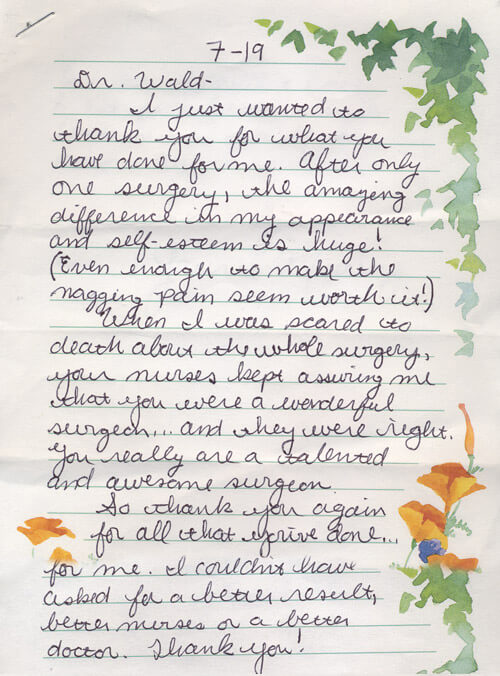 7-19
Dr. Wald-
I just wanted to
thank you for what you
have done for me. After only
one surgery, the amazing
difference in my appearance
and self-esteem is huge!
(Even enough to make the
nagging pain seem worth it!)
When I was scared to
death about the whole surgery,
your nurses kept assuring me
that you were a wonderful
surgeon... and they were right.
You really are a talented
and awesome surgeon
So thank you again
for all that you've done...
for me. I couldn't have
asked for a better result,
better nurses or a better
doctor. Thank you!